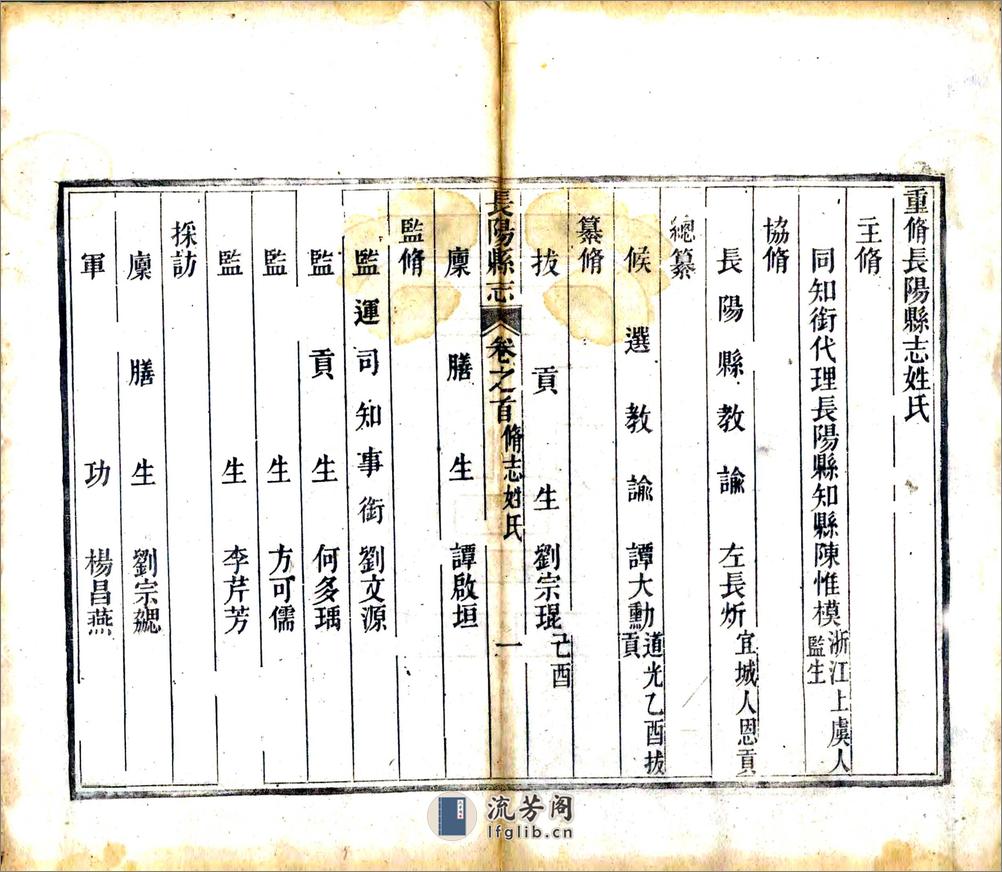 重脩長陽縣志姓氏
主脩
同知銜代理長陽縣知縣陳惟模浙江上虞人監生
協脩
長陽縣教諭左長炘宜城人恩貢
總纂
候選教諭譚大勳道光乙酉拔貢
纂脩
拔貢生劉宗琨己酉
長陽縣志
卷之首脩志姓氏
一
廩膳生譚啟垣
監脩
監運司知事銜劉文源
監貢生何多瑀
監生方可儒
監生李芹芳
採訪
廩膳生劉宗勰
軍功楊昌燕
流芳阁
lfglib.cn